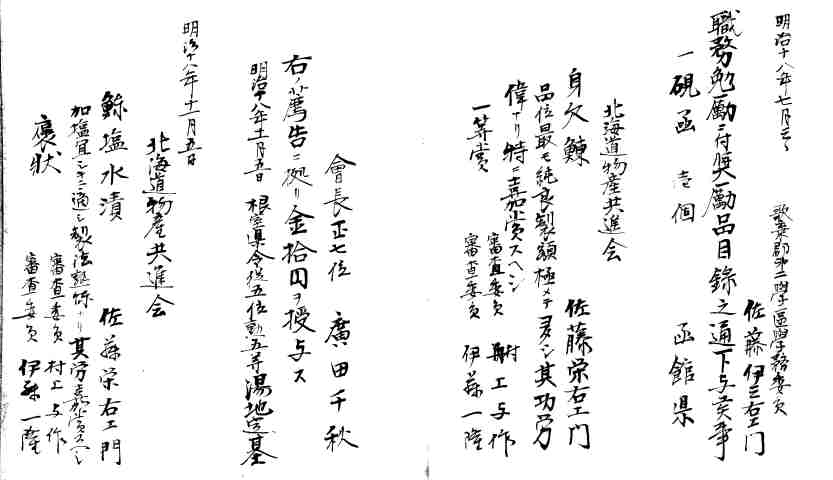 明治十八年七月三日
歌棄郡第二学区学務委員
佐藤伊三右エ門
職務勉励ニ付奨励品目録之通下与候事
一硯函 壱個
函館県
北海道物産共進会
身欠鰊
佐藤栄右エ門
品位最モ純良製額極メテ多シ其功労
偉ナリ特ニ嘉賞スヘシ
一等賞
審査委員 村上与作
審査委員 伊藤一隆
會長正七位 廣田千秋
右ノ薦告ニ処リ金拾円ヲ授与ス
明治十八年十一月五日 根室県令従五位勲五等湯地定基
明治十八年十一月五日
北海道物産共進会
鮭塩水漬 佐藤栄右エ門
加塩宜シキニ適シ製法熟練ナリ其労嘉賞スヘシ
褒状
審査委員 村上与作
審査委員 伊藤一隆